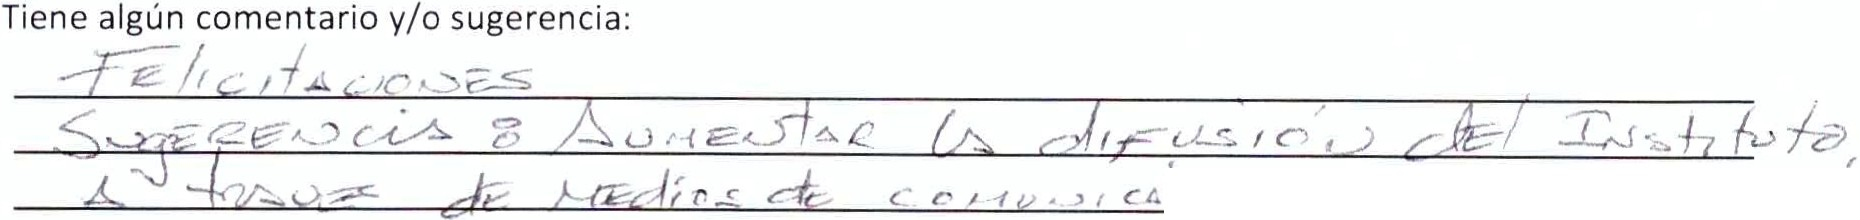 Tiene algún comentario y/o sugerencia:
Felicitaciones
Sugerencia: Aumentar la difusión del Instituto,
a travez de medios de comunica